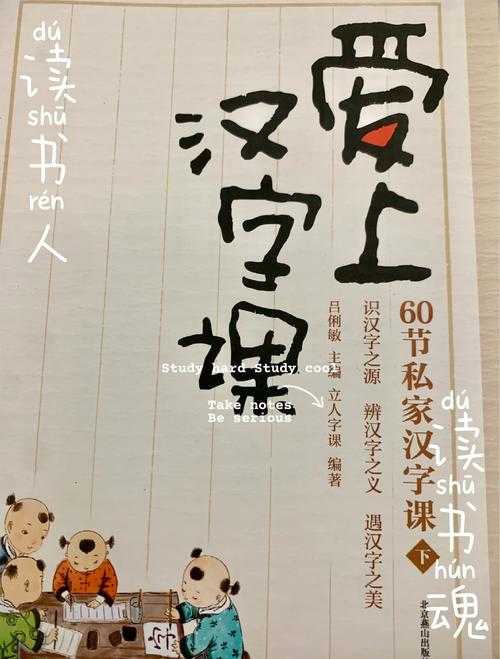 爱上
汉字课
60节私家汉字课 下
识汉字之源 辨汉字之义 遇汉字之美
吕俐敏 主编 立人字课 编著
北京燕山出版
dú
读
shū
书
rén
人
Study hard Study cool
Take notes
Be serious
dú
读
shū
书
hún
魂